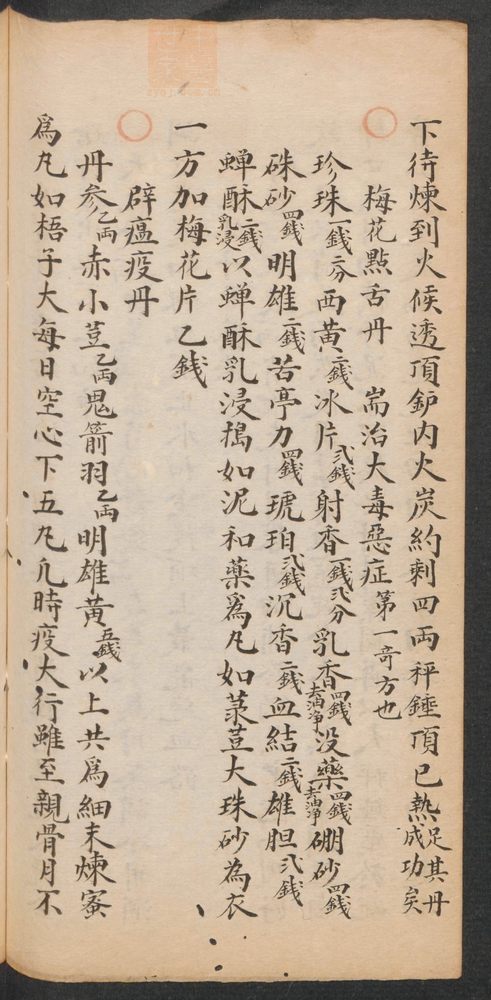 下待煉到火候透頂鈩内火炭約剩四兩秤錘頂已熱足其丹成功矣
梅花點舌丹 耑治大毒惡症第一竒方也
珍珠一錢二分西黄二錢冰片弍錢射香一錢弍分乳香四錢去油淨没藥四錢去油淨硼砂四錢
硃砂四錢明雄二錢苦亭力四錢琥珀弍錢沉香二錢血結二錢雄胆弍錢
蟬酥二錢乳浸以蟬酥乳浸搗如泥和藥爲凡如菉荳大珠砂為衣
一方加梅花片乙錢
辟瘟疫丹
丹参乙両赤小荳乙両鬼箭羽乙両明雄黄五錢以上共爲細末煉蜜
爲凡如梧子大每日空心下五凡凢時疫大行雖至親骨月不